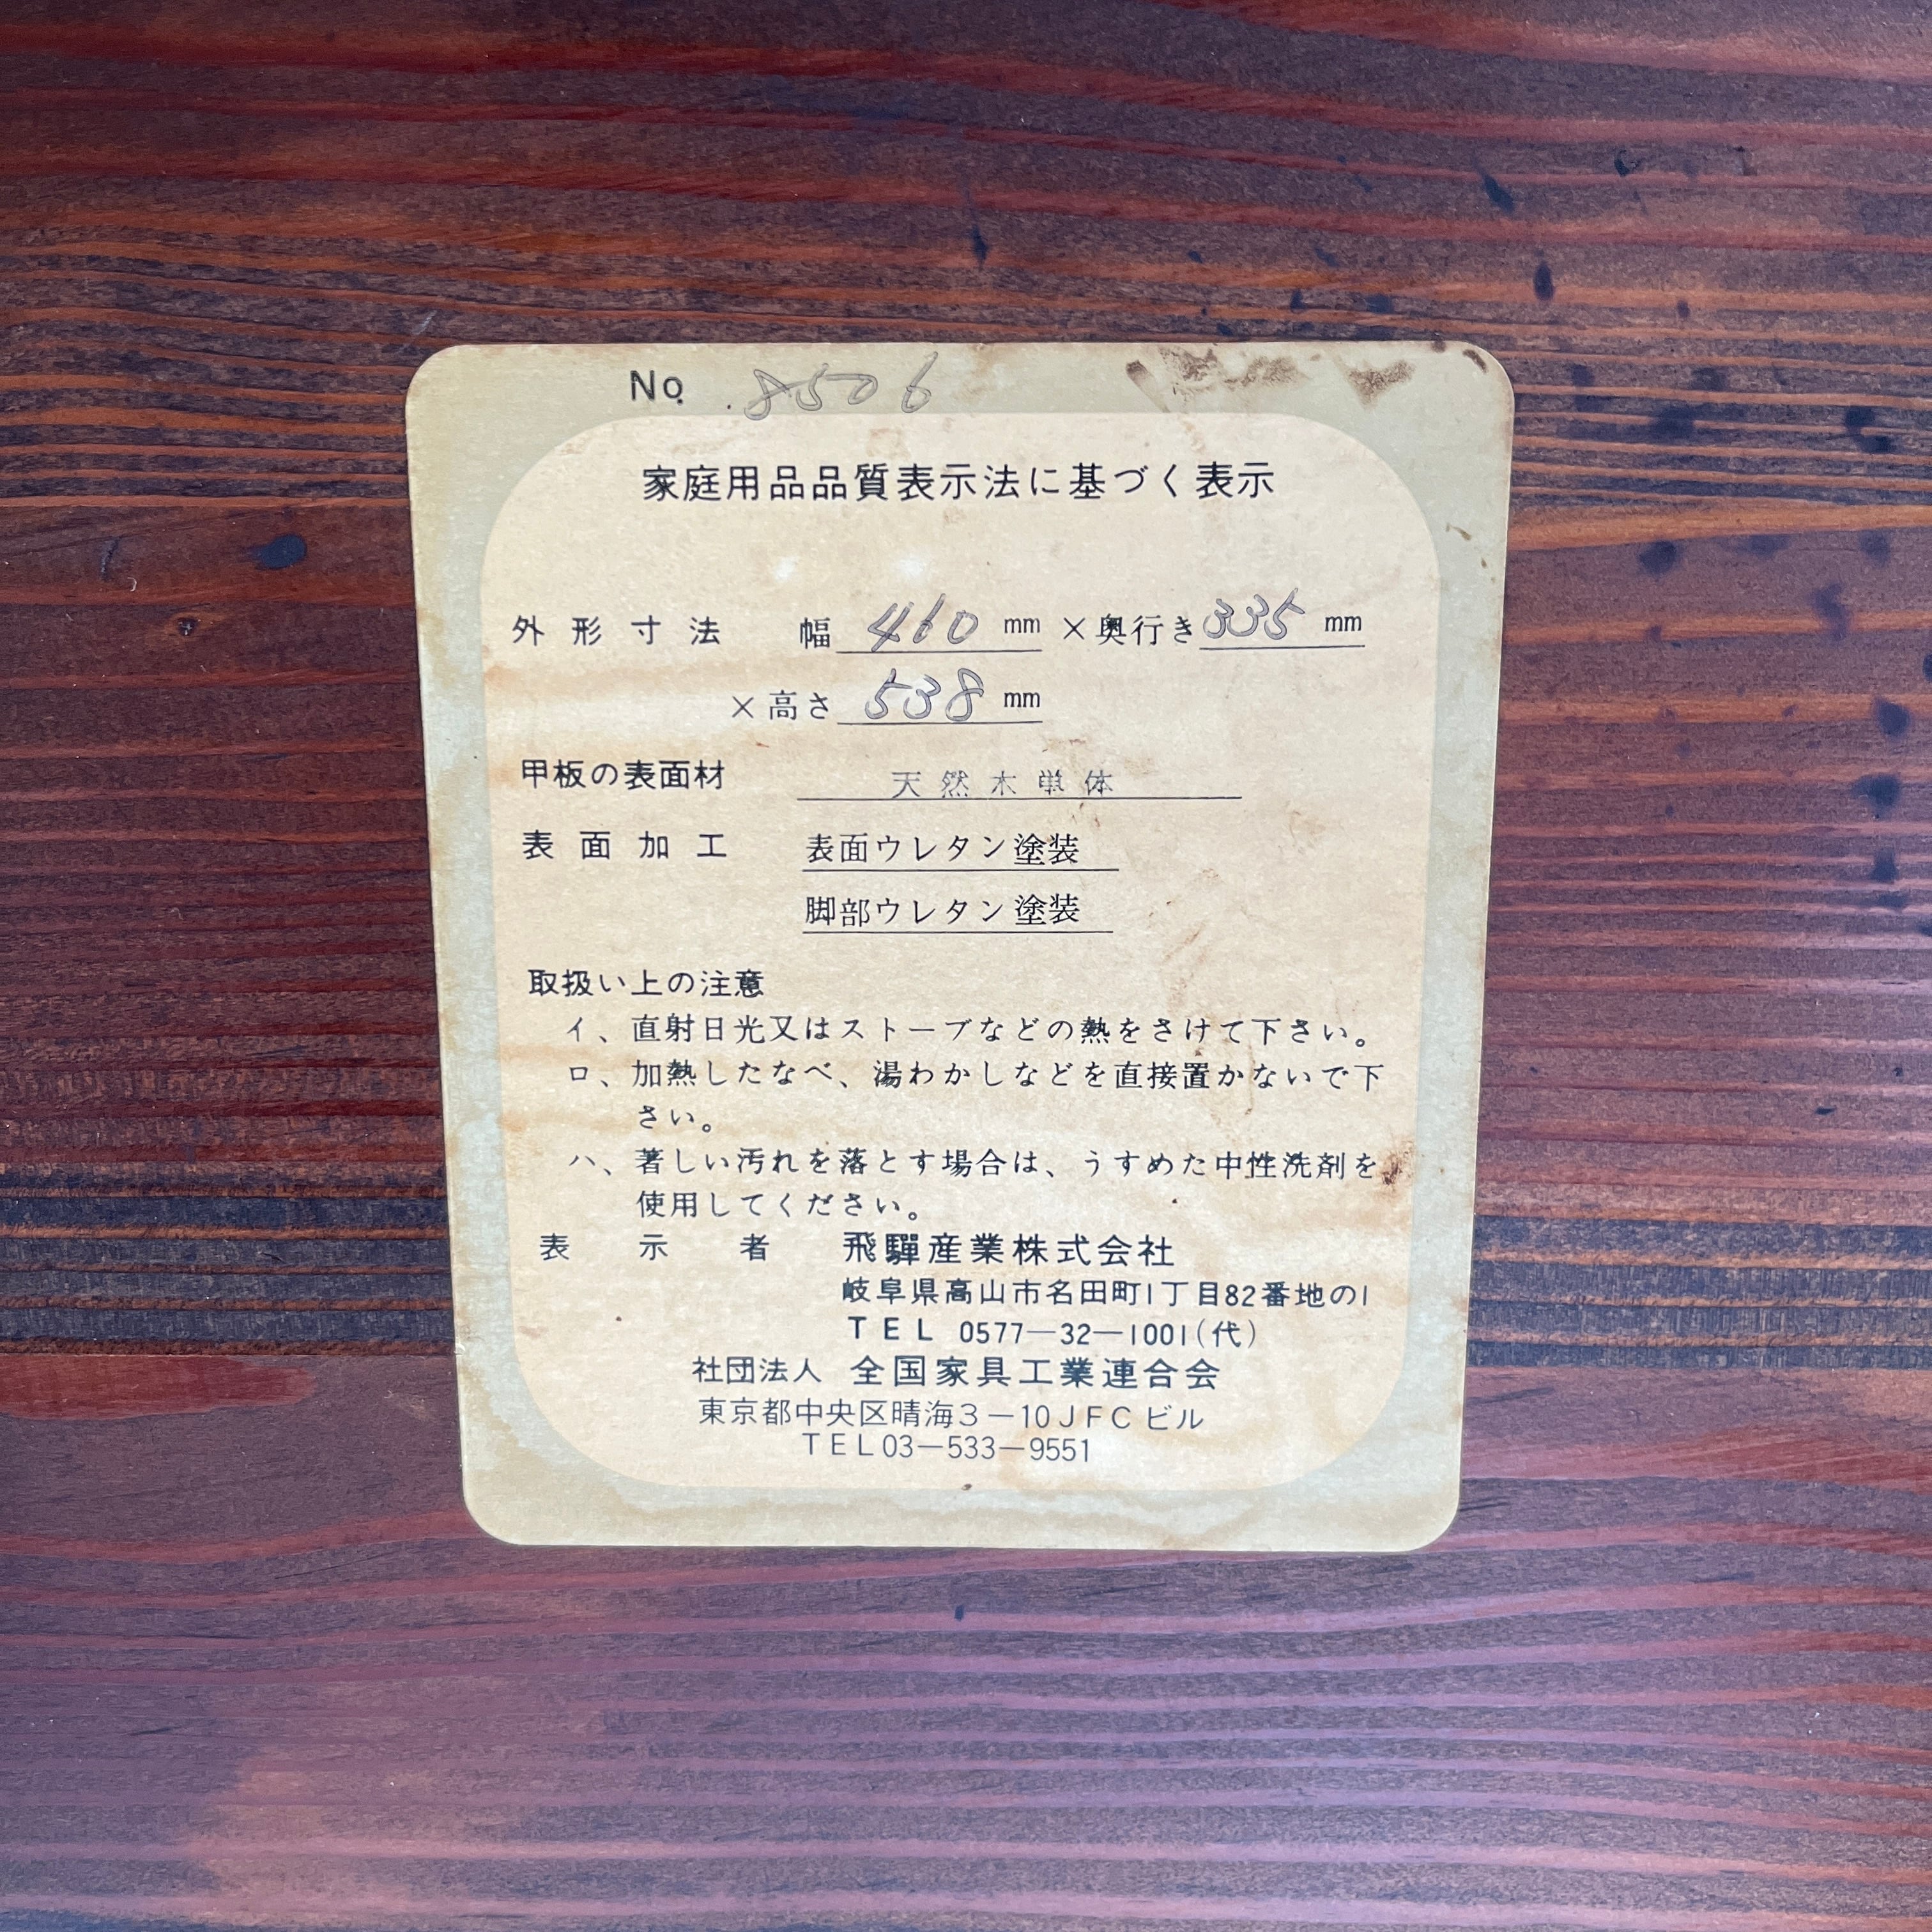 No. 8506
家庭用品品質表示法に基づく表示
外形寸法 幅 460 mm ×奥行き 335 mm
×高さ 538 mm
甲板の表面材 天然木単体
表面加工 表面ウレタン塗装
脚部ウレタン塗装
取扱い上の注意
イ、直射日光又はストーブなどの熱をさけて下さい。
ロ、加熱したなべ、湯わかしなどを直接置かないで下
さい。
ハ、著しい汚れを落とす場合は、うすめた中性洗剤を
使用してください。
表示者 飛驒産業株式会社
岐阜県高山市名田町1丁目82番地の1
TEL 0577―32―1001(代)
社団法人 全国家具工業連合会
東京都中央区晴海3―10JFCビル
TEL03―533―9551